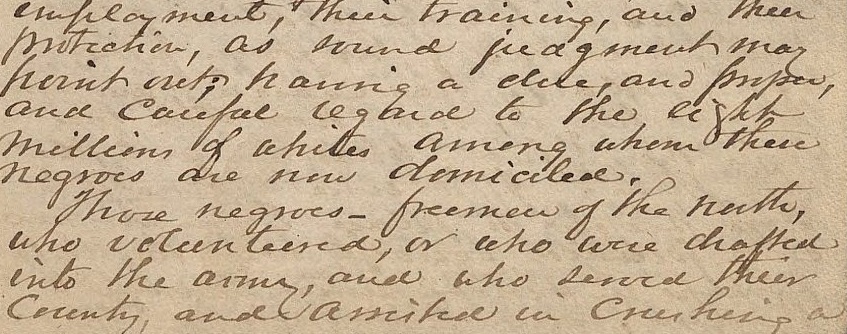 employment, their training, and their
protection, as sound judgment may
point out; having a due, and proper,
and careful regard to the eight
millions of whites among whom these
negroes are now domiciled.
Those negroes - freemen of the north,
who volunteered, or who were drafted
into the army, and who served their
County, and assisted in Crushing a